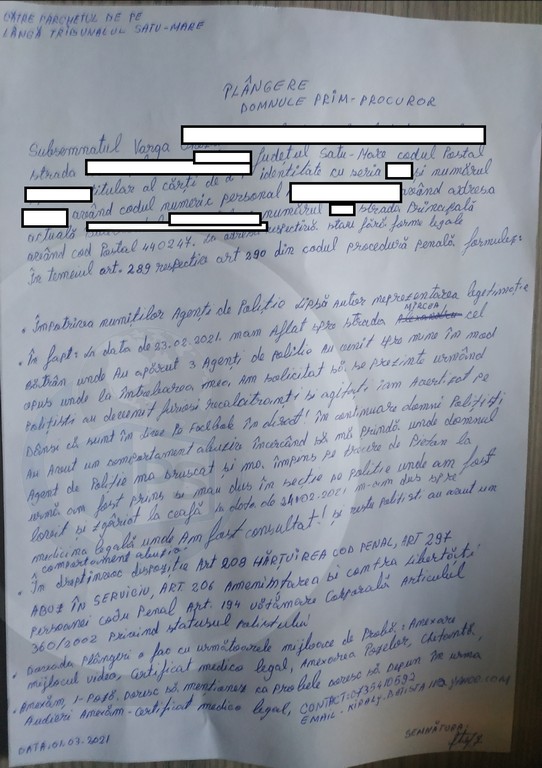 CĂTRE PARCHETUL DE PE
LÂNGĂ TRIBUNALUL SATU-MARE
PLÂNGERE
DOMNULE PRIM-PROCUROR
Subsemnatul Varga
strada județul Satu-Mare codul Postal
titular al cărții de identitate cu seria și numărul
având codul numeric personal având adresa
actuală numărul strada Principală
având cod Postal 440247. la adresa respectivă stau fără forme legale
În temeiul art. 289 respectiv art 290 din codul procedură penală formulez:
• Împotriva numiților Agenți de Poliție lipsă Autor neprezentarea legitimație
MIRCEA
• În fapt: La data de 23.02.2021. mam Aflat spre strada cel
bătrân unde Au apărut 3 Agenți de poliție Au venit spre mine în mod
opus unde la întrebarea mea. Am solicitat să se prezinte urmând
Polițiști au devenit furiosi recalcitranți si agitați iam Acertizat pe
Dânsi că sunt în live pe Facbook în direct! în continuare domni Polițiști
Au Avut un comportament abuziv încercând să mă prindă unde domnul
Agent de Poliție ma bruscat si ma împins pe trecere de Pietoni la
urmă am fost prins se mau dus în secție pe politie unde am fost
lovit si zgâriat la ceafă la data de 24.02.2021 m-am dus spre
medicina legală unde Am fost consultat! și restu polițisti au avut un
comportament abuziv
• În drept invoc dispoziție Art 208 HĂRȚUIREA COD PENAL, ART 297
ABUZ ÎN SERVICIU, ART 206 Amenințarea si contra libertății
persoanei codu Penal Art. 194 vătămare Corporală Articolul
360/2002 Privind statusul polistului
• Dovada plângeri o fac cu următoarele mijloace de Probă: Anexare
mijlocul video, Certificat medico legal, Anexarea Pozelor,
• Anexăm, 1- Poză. Doresc să menționez ca Probele doresc să Depun în urma
Audieri Anexăm - Certificat medico legal, CONTACT: 0735410592
EMAIL - KIRALY.BATISTA
DATA. 01.03.2021
SEMNĂTURA: